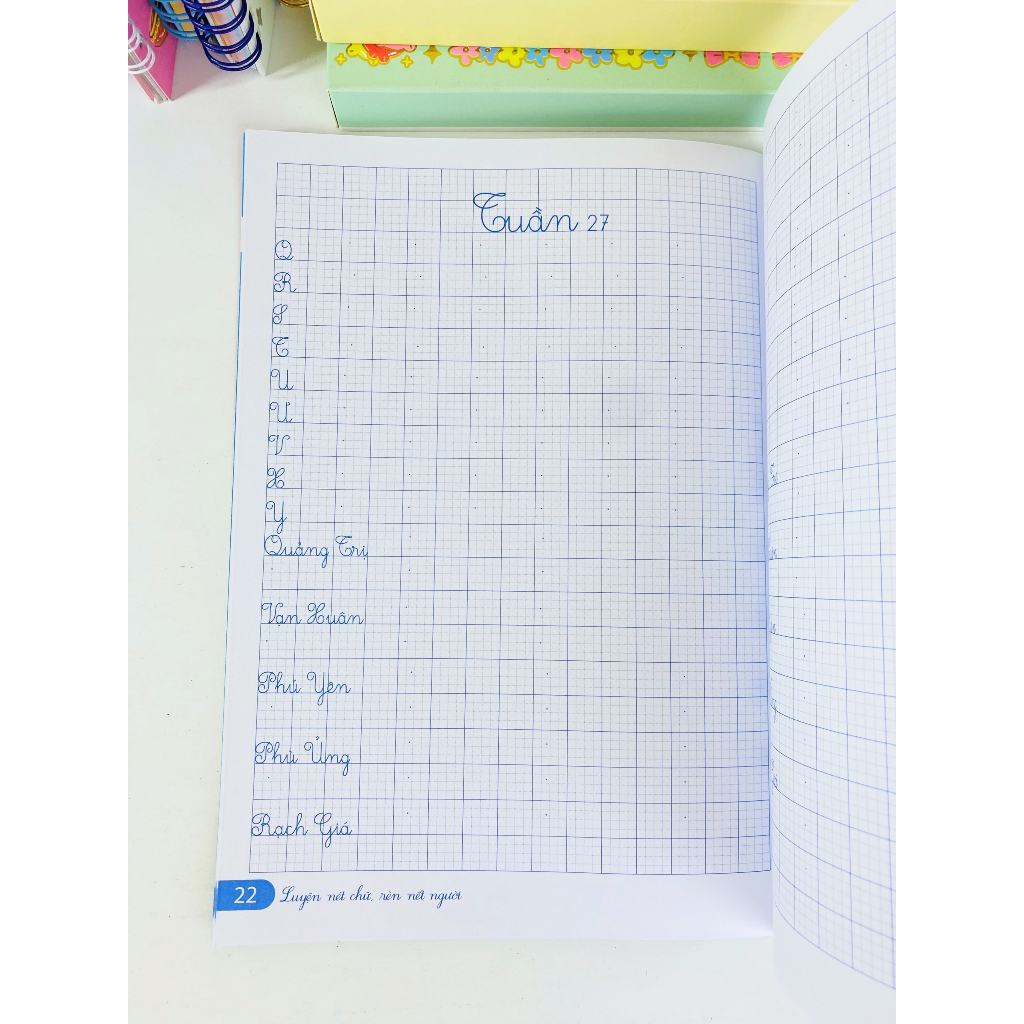 Tuần 27
Q
R
S
T
U
Ư
V
X
Y
Quảng Trị
Vạn Xuân
Phú Yên
Phù Ủng
Rạch Giá
22 Luyện nét chữ, rèn nết người